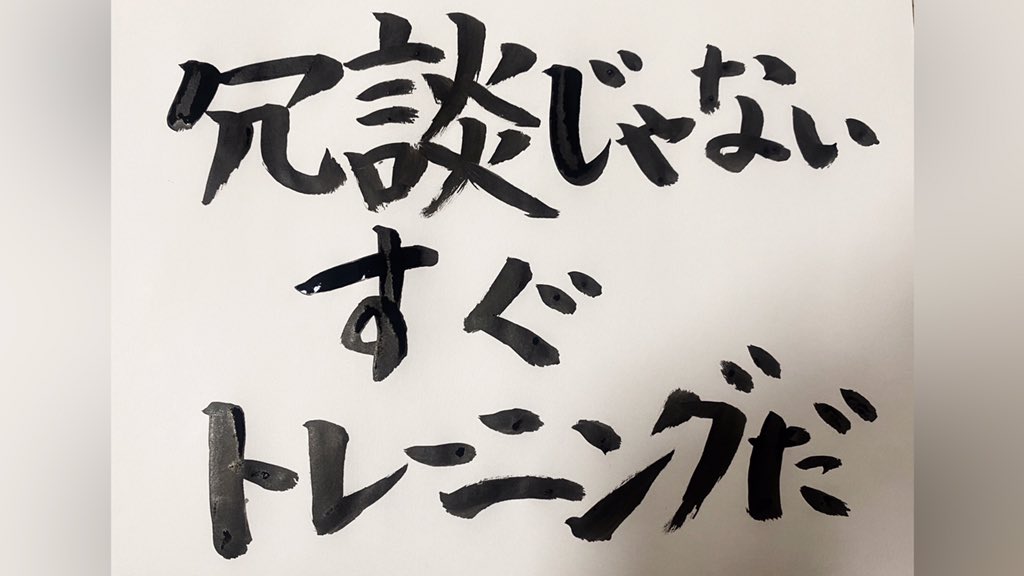 冗談じゃない
すぐ
トレーニングだ